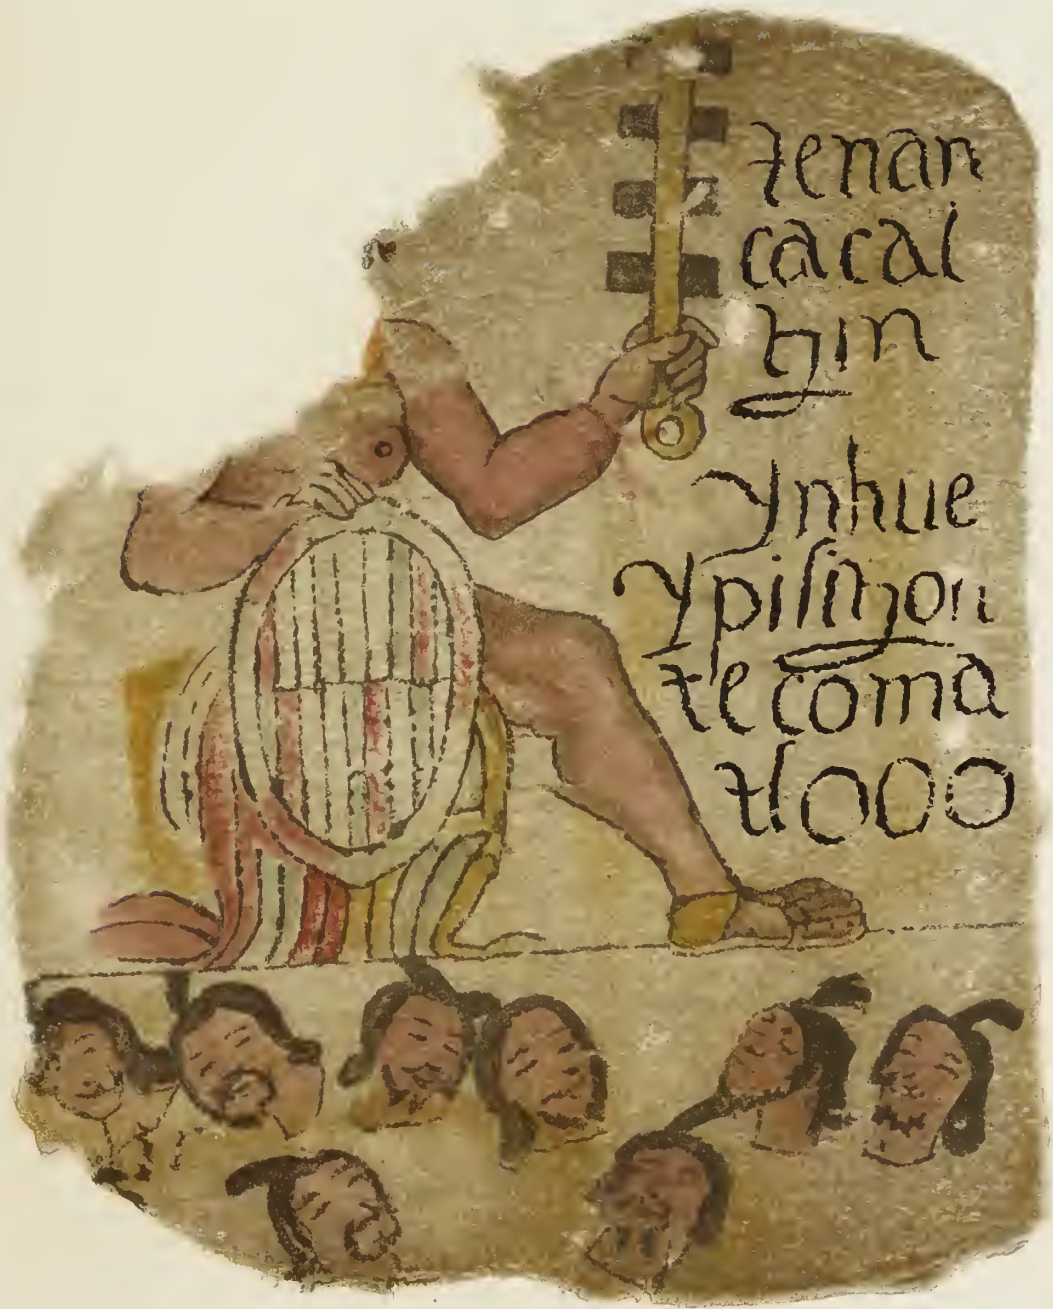 tenan
cacal
tzin
ynhue
ypilitzon
tecoma
tlooo